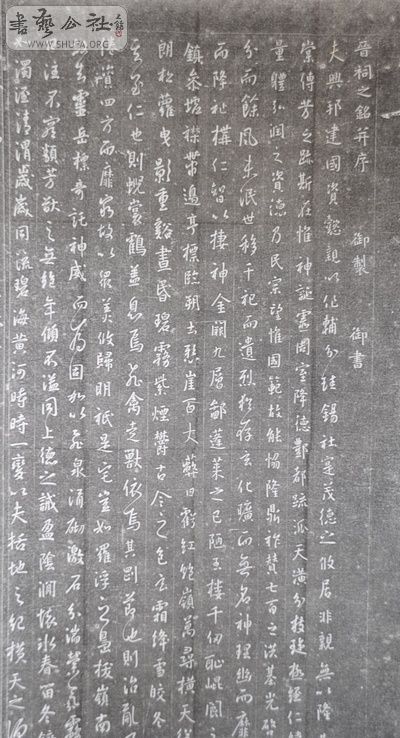 書藝公社
WWW.SHUFA.ORG
晉祠之銘并序 御製 御書
夫興邦建國資懿親以作輔分珪錫社寔茂德之攸居非親無以隆
傳芳之跡斯在惟神誕靈周室降德酆都疏派天潢分枝璇極經仁緯
量體弘潤之資德乃民宗望惟國範故能協隆鼎祚贊七百之洪基光啟
分而餘風未泯世移千祀而遺烈猶存玄化曠而無名神理幽而靡
而降祉構仁智以棲神金闕九層鄙蓬萊之已陋玉樓千仞恥崑閬之
鎮參墟襟帶邊亭標臨朔土懸崖百丈蔽日虧紅絕嶺萬尋橫天
朗松蘿曳影重谿晝昏碧霧紫煙鬱古今之色玄霜絳雪皎冬
至仁也則蜺裳鶴蓋息焉飛禽走獸依焉其剛節也則治亂
資四方而靡窮故以眾美攸歸明祇是宅豈如羅浮之島拔嶺南
靈岳標奇託神威而為固加以飛泉涌砌激石分湍縈氛霧
注不窮類芳猷之無絕年傾不溢同上德之誡盈陰澗懷冰春留冬鏡
濁涇清渭歲歲同流碧海黃河時時一變以夫括地之紀橫天之源